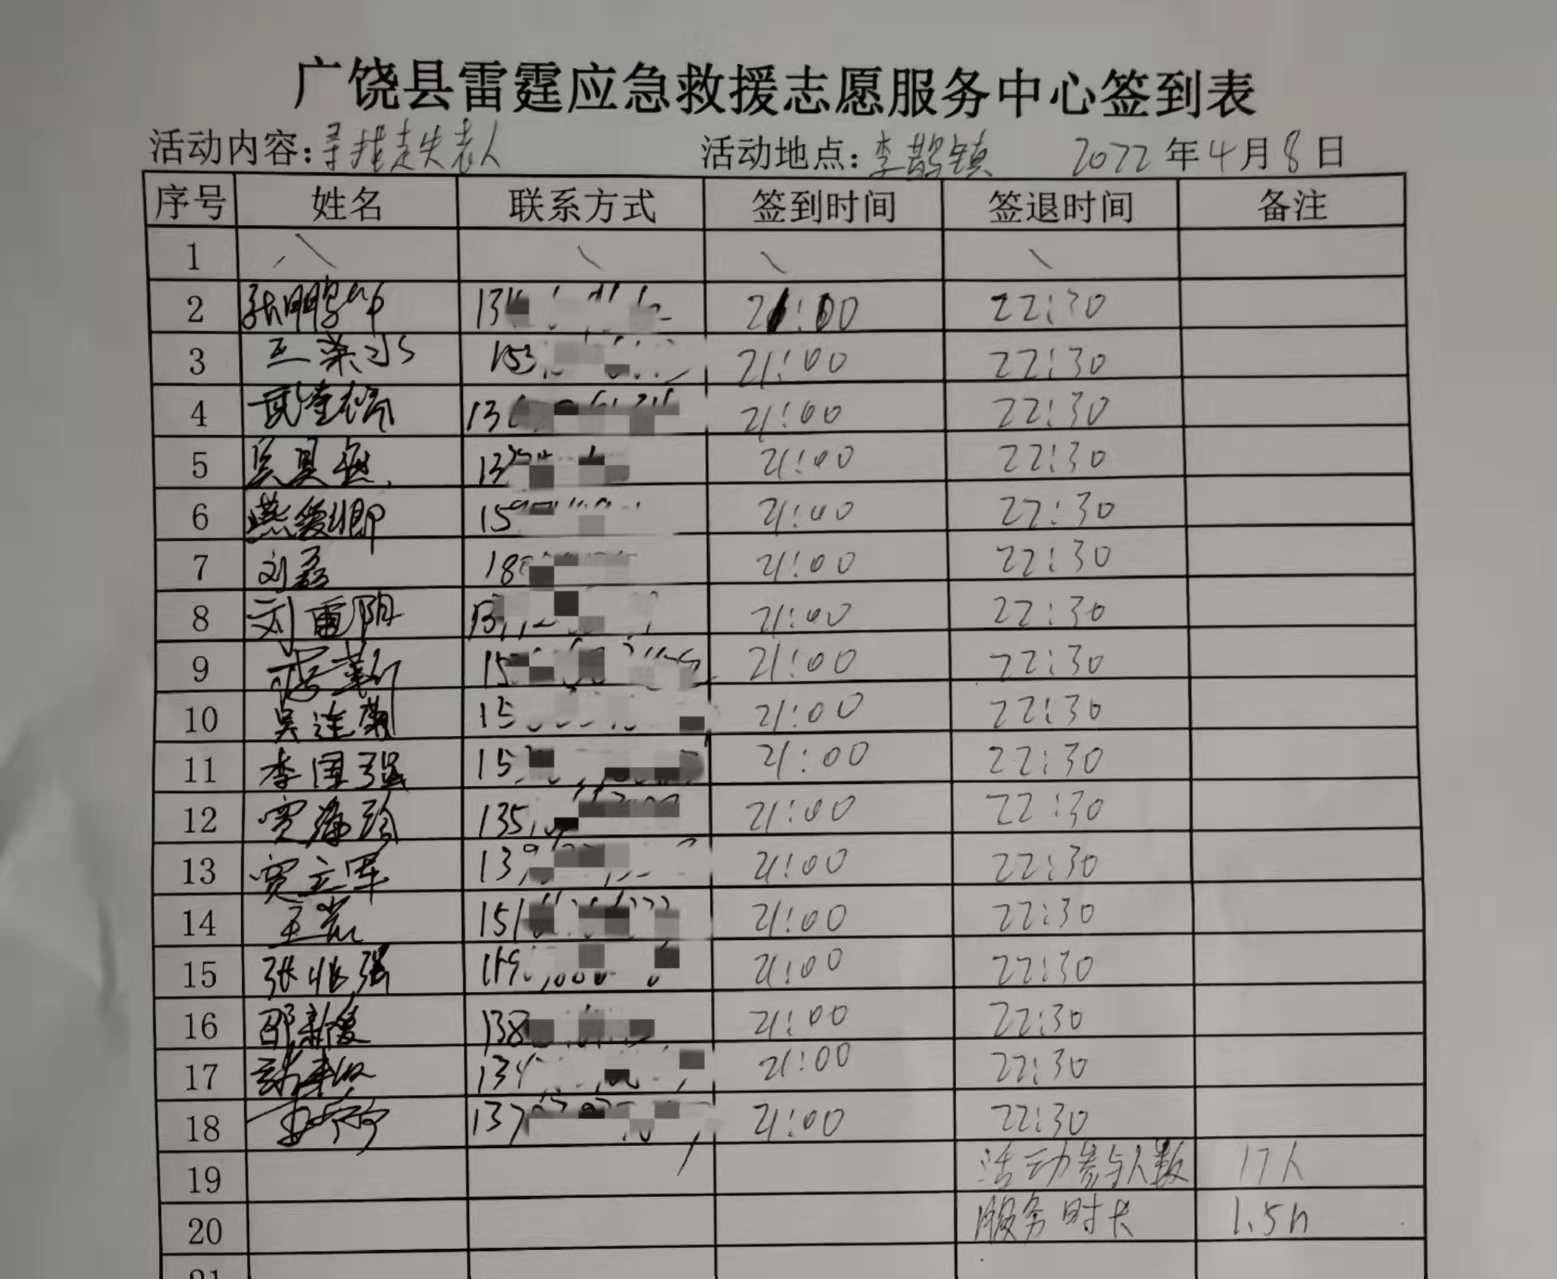 广饶县雷霆应急救援志愿服务中心签到表
活动内容:寻找走失老人 活动地点:李鹊镇 2022年4月8日
序号 姓名 联系方式 签到时间 签退时间 备注
1 \ \ \ \
2 张鹏华 13 21:00 22:30
3 王荣水 153 21:00 22:30
4 13 21:00 22:30
5 13 21:00 22:30
6 燕爱卿 15 21:00 22:30
7 刘磊 18 21:00 22:30
8 刘雷阴 13 21:00 22:30
9 15 21:00 22:30
10 吴连菊 15 21:00 22:30
11 李国强 15 21:00 22:30
12 贾海珍 135 21:00 22:30
13 贾立军 139 21:00 22:30
14 王岩 151 21:00 22:30
15 张兆强 21:00 22:30
16 邵新爱 138 21:00 22:30
17 134 21:00 22:30
18 137 21:00 22:30
19 活动参与人数 17人
20 服务时长 1.5h
21